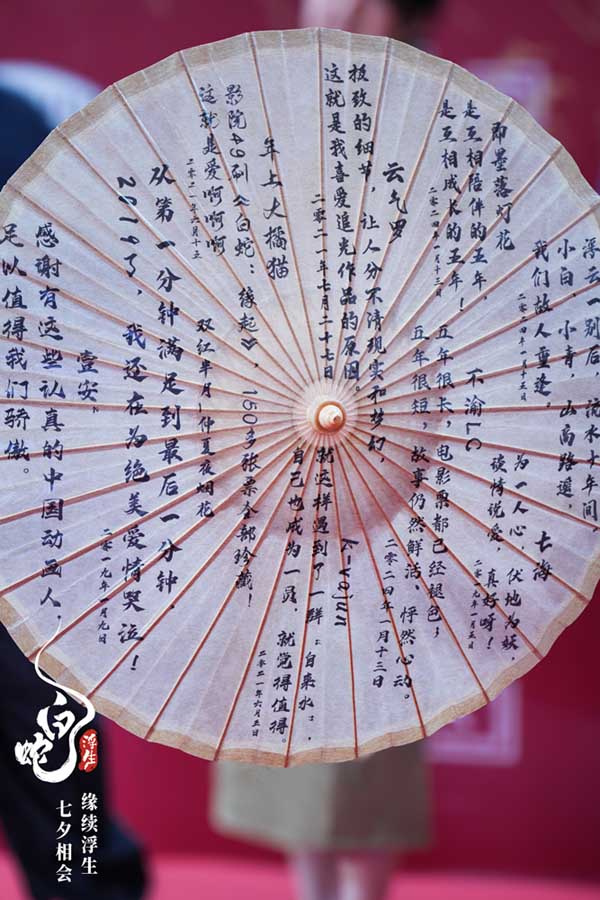 浮云一别后，流水十年间，
小白，小青，山高路遥，
我们故人重逢。
二零二四年一月十五日
七海
为一人心，伏地为妖，
谈情说爱，真好呀！
二零一九年一月五日
即墨落灯花
是互相陪伴的五年，
是互相成长的五年！
二零二四年一月十三日
不渝LC
五年很长，电影票都已经褪色；
五年很短，故事仍然鲜活、怦然心动。
二零二四年一月十三日
云乞罗
极致的细节，让人分不清现实和梦幻，
这就是我喜爱追光作品的原因。
二零二一年七月二十七日
yajun
就这样遇到了一群“自来水”，
自己也成为一员，就觉得值得。
二零二一年六月五日
年上大橘猫
影院49刷《白蛇：缘起》，150多张票全部珍藏！
这就是爱啊啊啊
二零二一年六月十五
双红半月—仲夏夜烟花
从第一分钟满足到最后一分钟，
2019了，我还在为绝美爱情哭泣！
二零一九年一月九日
壹安.
感谢有这些认真的中国动画人，
足以值得我们骄傲。
白蛇
浮生
缘续浮生
七夕相会